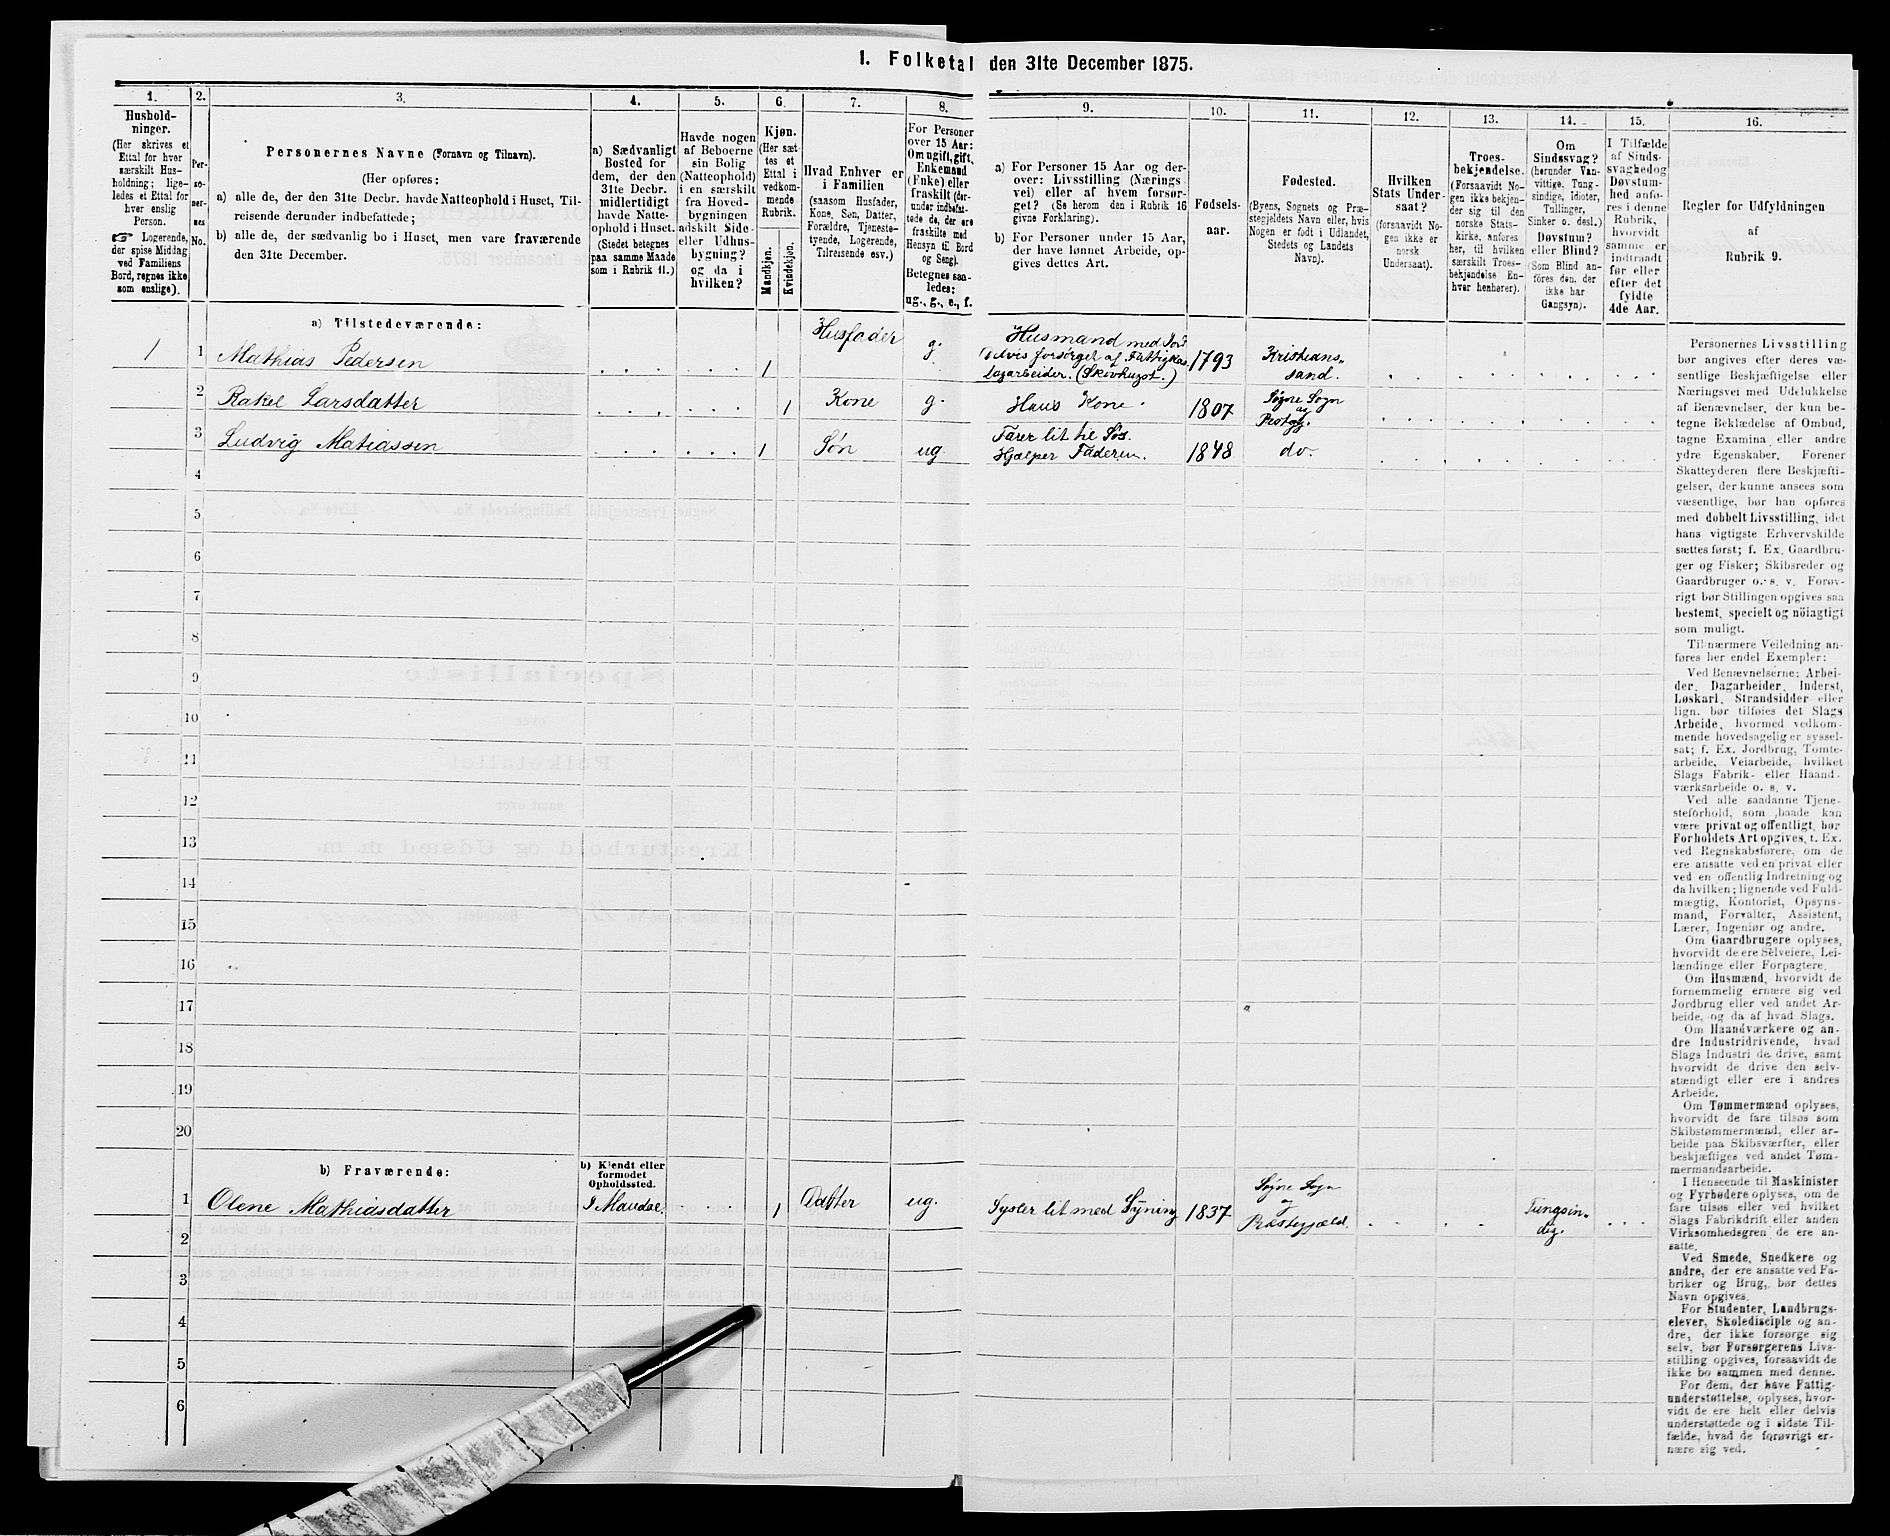 1. Folketal den 31te December 1875.
1.
Hushold-
ninger.
(Her skrives et
Ettal for hver
særskilt Hus-
holdning; lige-
ledes et Ettal for
hver enslig
Person.
☞ Logerende,
der spise Middag
ved Familiens
Bord, regnes ikke
som enslige).
2.
Per-
so-
ner-
nes
No.
3.
Personernes Navne (Fornavn og Tilnavn).
(Her opføres:
a) alle de, der den 31te Decbr. havde Natteophold i Huset, Til-
reisende derunder indbefattede;
b) alle de, der sædvanlig bo i Huset, men vare fraværende
den 31te December.
4.
a) Sædvanligt
Bosted for
dem, der den
31te Decbr.
midlertidigt
havde Natte-
ophold i Huset.
(Stedet betegnes
paa samme Maade
som i Rubrik 11.)
5.
Havde nogen
af Beboerne
sin Bolig
(Natteophold)
i en særskilt
fra Hoved-
bygningen
adskilt Side-
eller Udhus-
bygning?
og da i
hvilken?
6.
Kjøn.
(Her sæt-
tes et
Ettal i
vedkom-
mende
Rubrik.
Mandkjøn.
Kvindekjøn.
7.
Hvad Enhver er
i Familien
(saasom Husfader,
Kone, Søn, Datter,
Forældre, Tjeneste-
tyende, Logerende,
Tilreisende osv.)
8.
For Personer
over 15 Aar:
Om ugift, gift,
Enkemand
(Enke) eller
fraskilt (der-
under indbefat-
tede de, der ere
fraskilte med
Hensyn til Bord
og Seng).
Betegnes saa-
ledes:
ug., g., e., f.
9.
a) For Personer 15 Aar og der-
over: Livsstilling (Nærings-
vei) eller af hvem forsør-
get? (Se herom den i Rubrik 16
givne Forklaring).
b) For Personer under 15 Aar,
der have lønnet Arbeide, op-
gives dettes Art.
10.
Fødsels-
aar.
11.
Fødested.
(Byens, Sognets og Præ-
stegjeldets Navn eller, hvis
Nogen er født i Udlandet,
Stedets og Landets
Navn).
12.
Hvilken
Stats Under-
saat?
(forsaavidt No-
gen ikke er
norsk
Undersaat).
13.
Troes-
bekjendelse.
(Forsaavidt No-
gen ikke bekjen-
der sig til den
norske Stats-
kirke, anføres
her, til hvilken
særskilt Troes-
bekjendelse En-
hver henhører).
14.
Om
Sindssvag?
(herunder Van-
vittige, Tung-
sindige, Idioter,
Tullinger,
Sinker o. desl.)
Døvstum?
eller Blind?
(Som Blind an-
føres den, der
ikke har
Gangsyn).
15.
I Tilfælde
af Sinds-
svaghed og
Døvstum-
hed anfø-
res i denne
Rubrik,
hvorvidt
samme er
indtraadt
før eller
efter det
fyldte
4de Aar.
16.
Regler for Udfyldningen
af
Rubrik 9.
a) Tilstedeværende:
1 1 Mathias Pedersen 1 Husfader g. Husmand med Jord
delvis forsørget af Fattigkas.
Dagarbeider. (Skovhugst.) 1793 Kristians-
sand.
2 Rakel Larsdatter 1 Kone g. Hans Kone. 1807 Søgne Sogn
og
Præstegj.
3 Ludvig Matiassen 1 Søn ug Farer lit til Søs.
Hjælper Faderen. 1848 do.
4
5
6
7
8
9
10
11
12
13
14
15
16
17
18
19
20
b) Fraværende:
b) Kjendt eller
formodet
Opholdssted.
1 Olene Mathiasdatter I Mandal. 1 Datter ug. Sysler lit med Syning 1837 Søgne Sogn
og
Præstegjæld. Tungsin-
dig.
2
3
4
5
6
Personernes Livsstilling
bør angives efter deres væ-
sentlige Beskjæftigelse eller
Næringsvei med Udelukkelse
af Benævnelser, der kun be-
tegne Beklædelse af Ombud,
tagne Examina eller andre
ydre Egenskaber. Forener
Skatteyderen flere Beskjæfti-
gelser, der kunne ansees som
væsentlige, bør han opføres
med dobbelt Livsstilling, idet
hans vigtigste Erhvervskilde
sættes først; f. Ex. Gaardbru-
ger og Fisker; Skibsreder og
Gaardbruger o. s. v. Forøv-
rigt bør Stillingen opgives saa
bestemt, specielt og nöiagtigt
som muligt.
Til nærmere Veiledning an-
føres her endel Exempler:
Ved Benævnelserne: Arbei-
der, Dagarbeider, Inderst,
Løskarl, Strandsidder eller
lign. bør tilføies det Slags
Arbeide, hvormed vedkom-
mende hovedsagelig er syssel-
sat; f. Ex. Jordbrug, Tomte-
arbeide, Veiarbeide, hvilket
Slags Fabrik- eller Haand-
værksarbeide o. s. v.
Ved alle saadanne Tjene-
steforhold, som baade kan
være privat og offentligt, bør
Forholdets Art opgives, f. Ex.
ved Regnskabsførere, om de
ere ansatte ved en privat eller
ved en offentlig Indretning og
da hvilken; lignende ved Fuld-
mægtig, Kontorist, Opsyns-
mand, Forvalter, Assistent,
Lærer, Ingeniør og andre.
Om Gaardbrugere oplyses,
hvorvidt de ere Selveiere, Lei-
lændinge eller Forpagtere.
Om Husmænd, hvorvidt de
fornemmelig ernære sig ved
Jordbrug eller ved andet Ar-
beide, og da af hvad Slags.
Om Haandværkere og an-
dre Industridrivende, hvad
Slags Industri de drive, samt
hvorvidt de drive den selv-
stændigt eller ere i andres
Arbeide.
Om Tømmermænd oplyses,
hvorvidt de fare tilsøs som
Skibstømmermænd, eller ar-
beide paa Skibsværfter, eller
beskjæftiges ved andet Tøm-
mermandsarbeide.
I Henseende til Maskinister
og Fyrbødere oplyses, om de
fare tilsøs eller ved hvilket
Slags Fabrikdrift eller anden
Virksomhedsgren de ere an-
satte.
Ved Smede, Snedkere og
andre, der ere ansatte ved Fa-
briker og Brug, bør dettes
Navn opgives.
For Studenter, Landbrugs-
elever, Skoledisciple og an-
dre, der ikke forsørge sig
selv, bør Forsørgerens Livs-
stilling opgives, forsaavidt de
ikke bo sammen med denne.
For dem, der have Fattig-
understøttelse, oplyses, hvor-
vidt de ere helt eller delvis
understøttede og i sidste Til-
fælde, hvad de forøvrigt er-
nære sig ved.